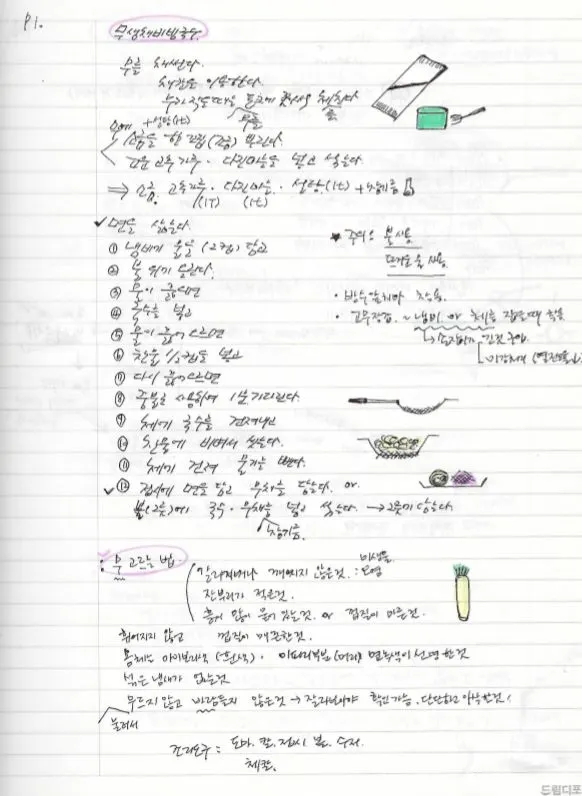 P1.
무생채비빔국수
무를 채썬다.
채칼을 이용한다.
무가 작을때는 포크에 꽂아서 채친다
무를
볼에 +설탕(1t)
소금을 한 꼬집(2g) 뿌린다.
고운 고추가루 · 다진마늘을 넣고 섞는다.
⇒ 소금, 고추가루 · 다진마늘 · 설탕(1t) + 참기름
(1T) (1t)
✓ 면을 삶는다.
① 냄비에 물을 (2컵) 담고
② 불 위에 올린다.
③ 물이 끓으면
④ 국수를 넣고
⑤ 물이 끓어오르면
⑥ 찬물 1/2컵을 넣고
⑦ 다시 끓어오르면
⑧ 중불로 사용하여 1분 기다린다.
⑨ 체에 국수를 건져내고
⑩ 찬물에 비벼서 씻는다.
⑪ 체에 건져 물기를 뺀다.
✓ ⑫ 접시에 면을 담고 무채를 담는다. or
볼(그릇)에 국수 · 무채를 넣고 섞는다. → 그릇에 담는다.
참기름
* 주의 : 불 사용
뜨거운 물 사용
· 방수앞치마 착용.
· 고무장갑. ~ 냄비 or 체를 잡을때 착용
→ 손잡이가 긴것 구입
: 무 고르는 법.
갈라지거나 깨지지 않은것. : 미생물 오염
잔뿌리가 적은것.
흙이 많이 묻어 있는것. or 껍질이 마른것.
휘어지지 않고 껍질이 매끈한것.
몸체는 아이보리색 (흰색) · 이파리부분 (머리) 연두색이 선명한것
썩은 냄새가 안나는것
무르지 않고 바람들지 않은것 → 잘라보아야 확인가능. 단단하고 아삭한것!
눌러서
조리도구 : 도마. 칼. 접시 볼. 수저.
채칼.
드림디포